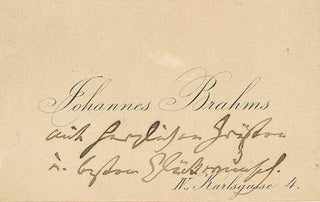 Johannes Brahms
mit herzlichen Grüßen
u. besten Glückwünschen.
IV., Karlsgasse 4.